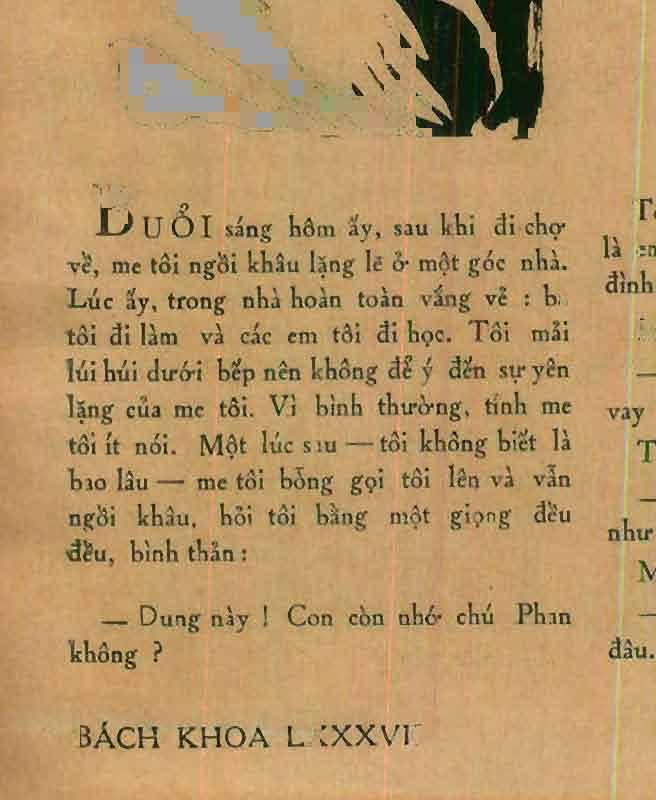 BUỔI sáng hôm ấy, sau khi đi chợ
về, me tôi ngồi khâu lặng lẽ ở một góc nhà.
Lúc ấy, trong nhà hoàn toàn vắng vẻ :
tôi đi làm và các em tôi đi học. Tôi mải
lúi húi dưới bếp nên không để ý đến sự yên
lặng của me tôi. Vì bình thường, tính me
tôi ít nói. Một lúc sau — tôi không biết là
bao lâu — me tôi bỗng gọi tôi lên và vẫn
ngồi khâu, hỏi tôi bằng một giọng đều
đều, bình thản :
— Dung này ! Con còn nhớ chú Phan
không ?
BÁCH KHOA
là
đình
—
vay
—
như
—
đâu.